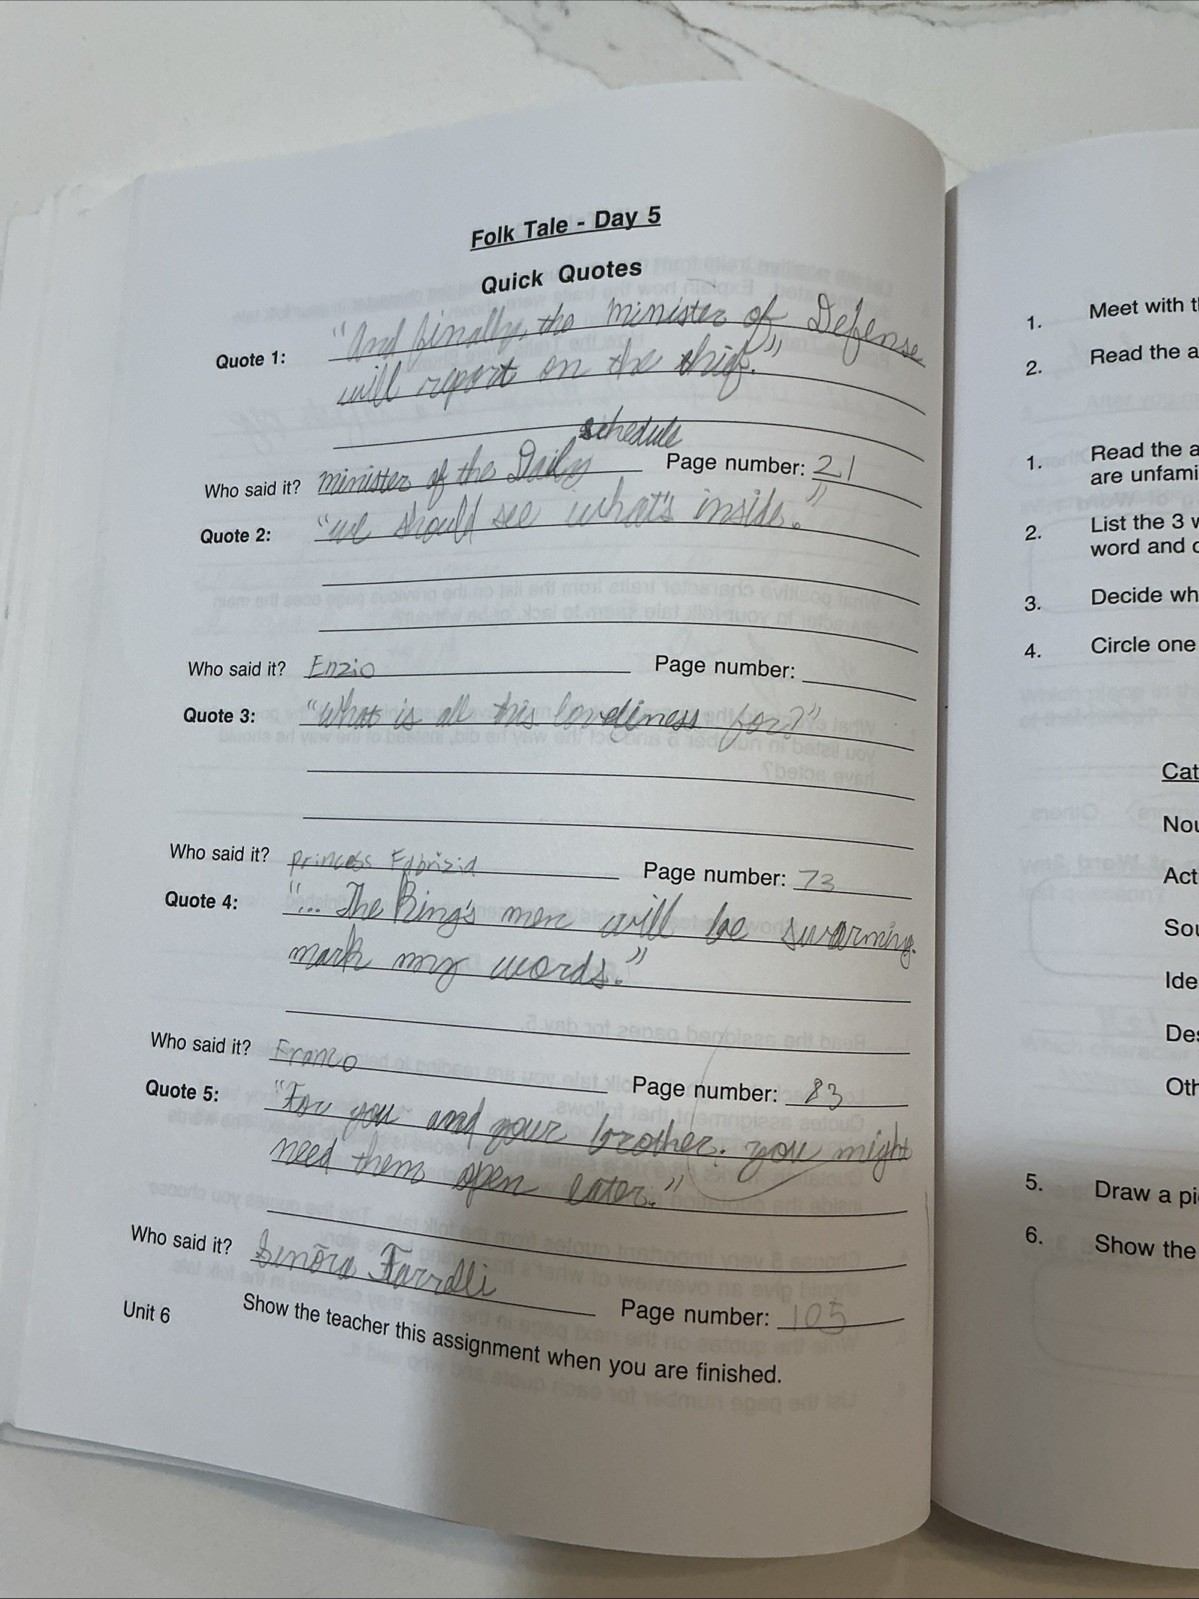 Folk Tale - Day 5
Quick Quotes
Quote 1: "And finally, the minister of Defense
will report on the thief."
schedule
Who said it? minister of the Daily Page number: 21
Quote 2: "we should see what's inside."
Who said it? Enzio Page number:
Quote 3: "What is all this loveliness for?"
Who said it? princess Fabrizia Page number: 73
Quote 4: "... The King's men will be swarming.
mark my words."
Who said it? Franco Page number: 83
Quote 5: "For you and your brother. you might
need them open later."
Who said it? Sinõra Farrelli Page number: 105
Unit 6 Show the teacher this assignment when you are finished.
1. Meet with t
2. Read the a
1. Read the a
are unfami
2. List the 3 w
word and
3. Decide wh
4. Circle one
Cat
Nou
Act
Sou
Ide
Des
Oth
5. Draw a pi
6. Show the